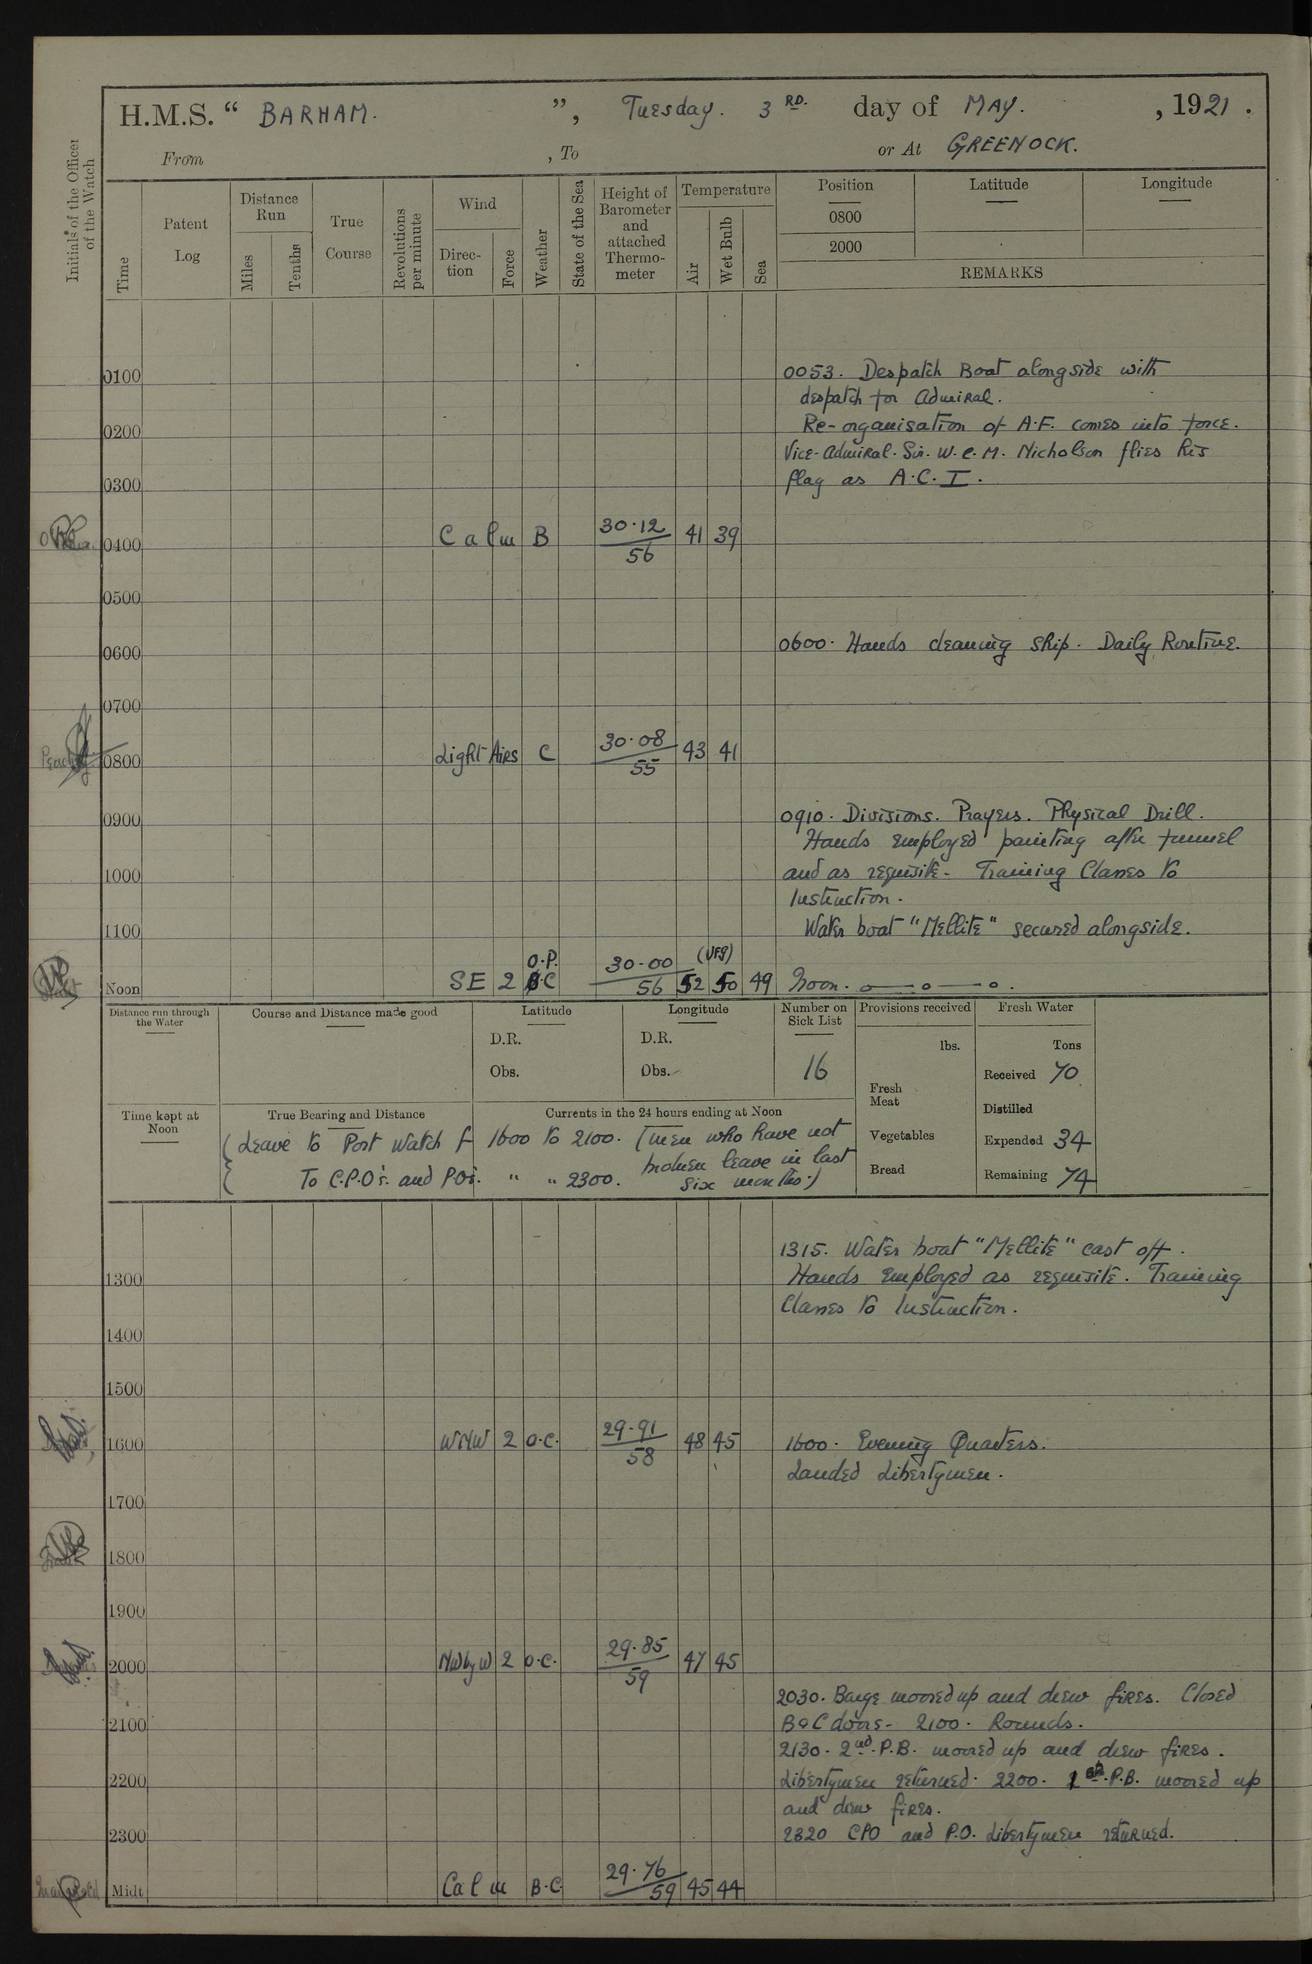 H.M.S. “ BARHAM. ”, Tuesday. 3 RD. day of MAY. , 1921 .
From , To or At GREENOCK.
Initials of the Officer of the Watch
Time
Patent Log
Distance Run
Miles
Tenths
True Course
Revolutions per minute
Wind
Direc- tion
Force
Weather
State of the Sea
Height of Barometer and attached Thermo- meter
Temperature
Air
Wet Bulb
Sea
Position Latitude Longitude
0800
2000
REMARKS
0100 0053. Despatch Boat alongside with
despatch for Admiral.
0200 Re-organisation of A.F. comes into force.
Vice-Admiral. Sir. W.C.M. Nicholson flies his
0300 flag as A.C.I.
0400 Calm B 30.12 41 39
56
0500
0600 0600. Hands cleaning ship. Daily Routine.
0700
0800 Light Airs C 30.08 43 41
55
0900 0910. Divisions. Prayers. Physical Drill.
Hands employed painting after funnel
1000 and as requisite. Training Classes to
Instruction.
1100 Water boat "Mellite" secured alongside.
O.P. 30.00
Noon SE 2 C 56 52 50 49 Noon.
Distance run through the Water
Course and Distance made good
Latitude
D.R.
Obs.
Longitude
D.R.
Obs.
Number on Sick List
16
Provisions received
lbs.
Fresh Meat
Vegetables
Bread
Fresh Water
Tons
Received 70
Distilled
Expended 34
Remaining 74
Time kept at Noon
True Bearing and Distance
Currents in the 24 hours ending at Noon
Leave to Port Watch f 1600 to 2100. (men who have not
To C.P.O's. and P.O's. " " 2300. broken leave in last
six months.)
1315. Water boat "Mellite" cast off.
1300 Hands employed as requisite. Training
Classes to Instruction.
1400
1500
1600 WNW 2 O.C. 29.91 48 45 1600. Evening Quarters.
58
Landed Libertymen.
1700
1800
1900
2000 NWbyW 2 O.C. 29.85 47 45
59
2030. Barge moored up and drew fires. Closed
2100 B & C doors. 2100. Rounds.
2130. 2nd. P.B. moored up and drew fires.
2200 Libertymen returned. 2200. 1 P.B. moored up
and drew fires.
2300 2320 CPO and P.O. Libertymen returned.
Midt Calm B.C 29.76 45 44
59